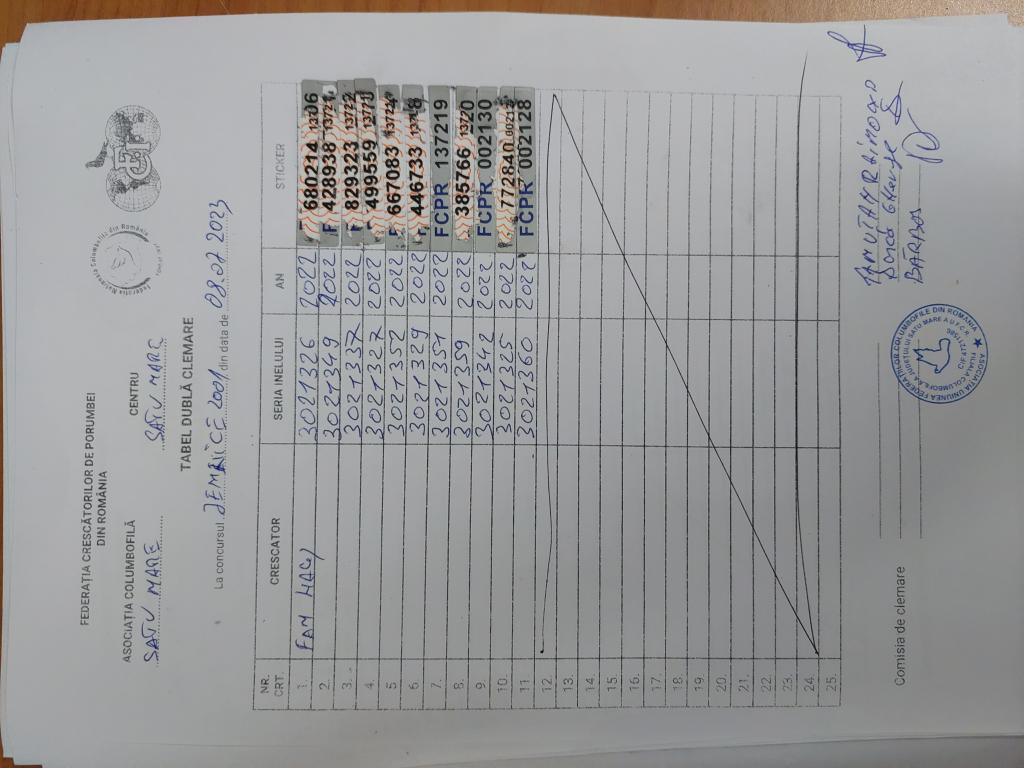 FEDERAȚIA CRESCĂTORILOR DE PORUMBEI
DIN ROMÂNIA
ASOCIAȚIA COLUMBOFILĂ CENTRU
SATU MARE SATU MARE
Federația Națională Columbofilă din România
FCI
TABEL DUBLĂ CLEMARE
La concursul din data de 08.07 2023
NR. CRT. CRESCĂTOR SERIA INELULUI AN STICKER
1. FAM 3021326 2022 680214
2. 3021349 2022 428938
3. 3021337 2022 829323
4. 3021327 2022 499559
5 3021352 2022 667083
6. 3021329 2022 446733
7. 3021351 2022 FCPR 137219
8. 3021359 2022 385766
9. 3021342 2022 FCPR 002130
10. 3021325 2022 772840
11. 3021360 2022 FCPR 002128
12.
13.
14.
15.
16.
17.
18.
19.
20.
21.
22.
23.
24.
25.
Comisia de clemare
ASOCIAȚIA UNIUNEA FEDERAȚIILOR COLUMBOFILE DIN ROMANIA
FILIALA COLUMBOFILĂ A JUDEȚULUI SATU MARE A U.F.C.R.